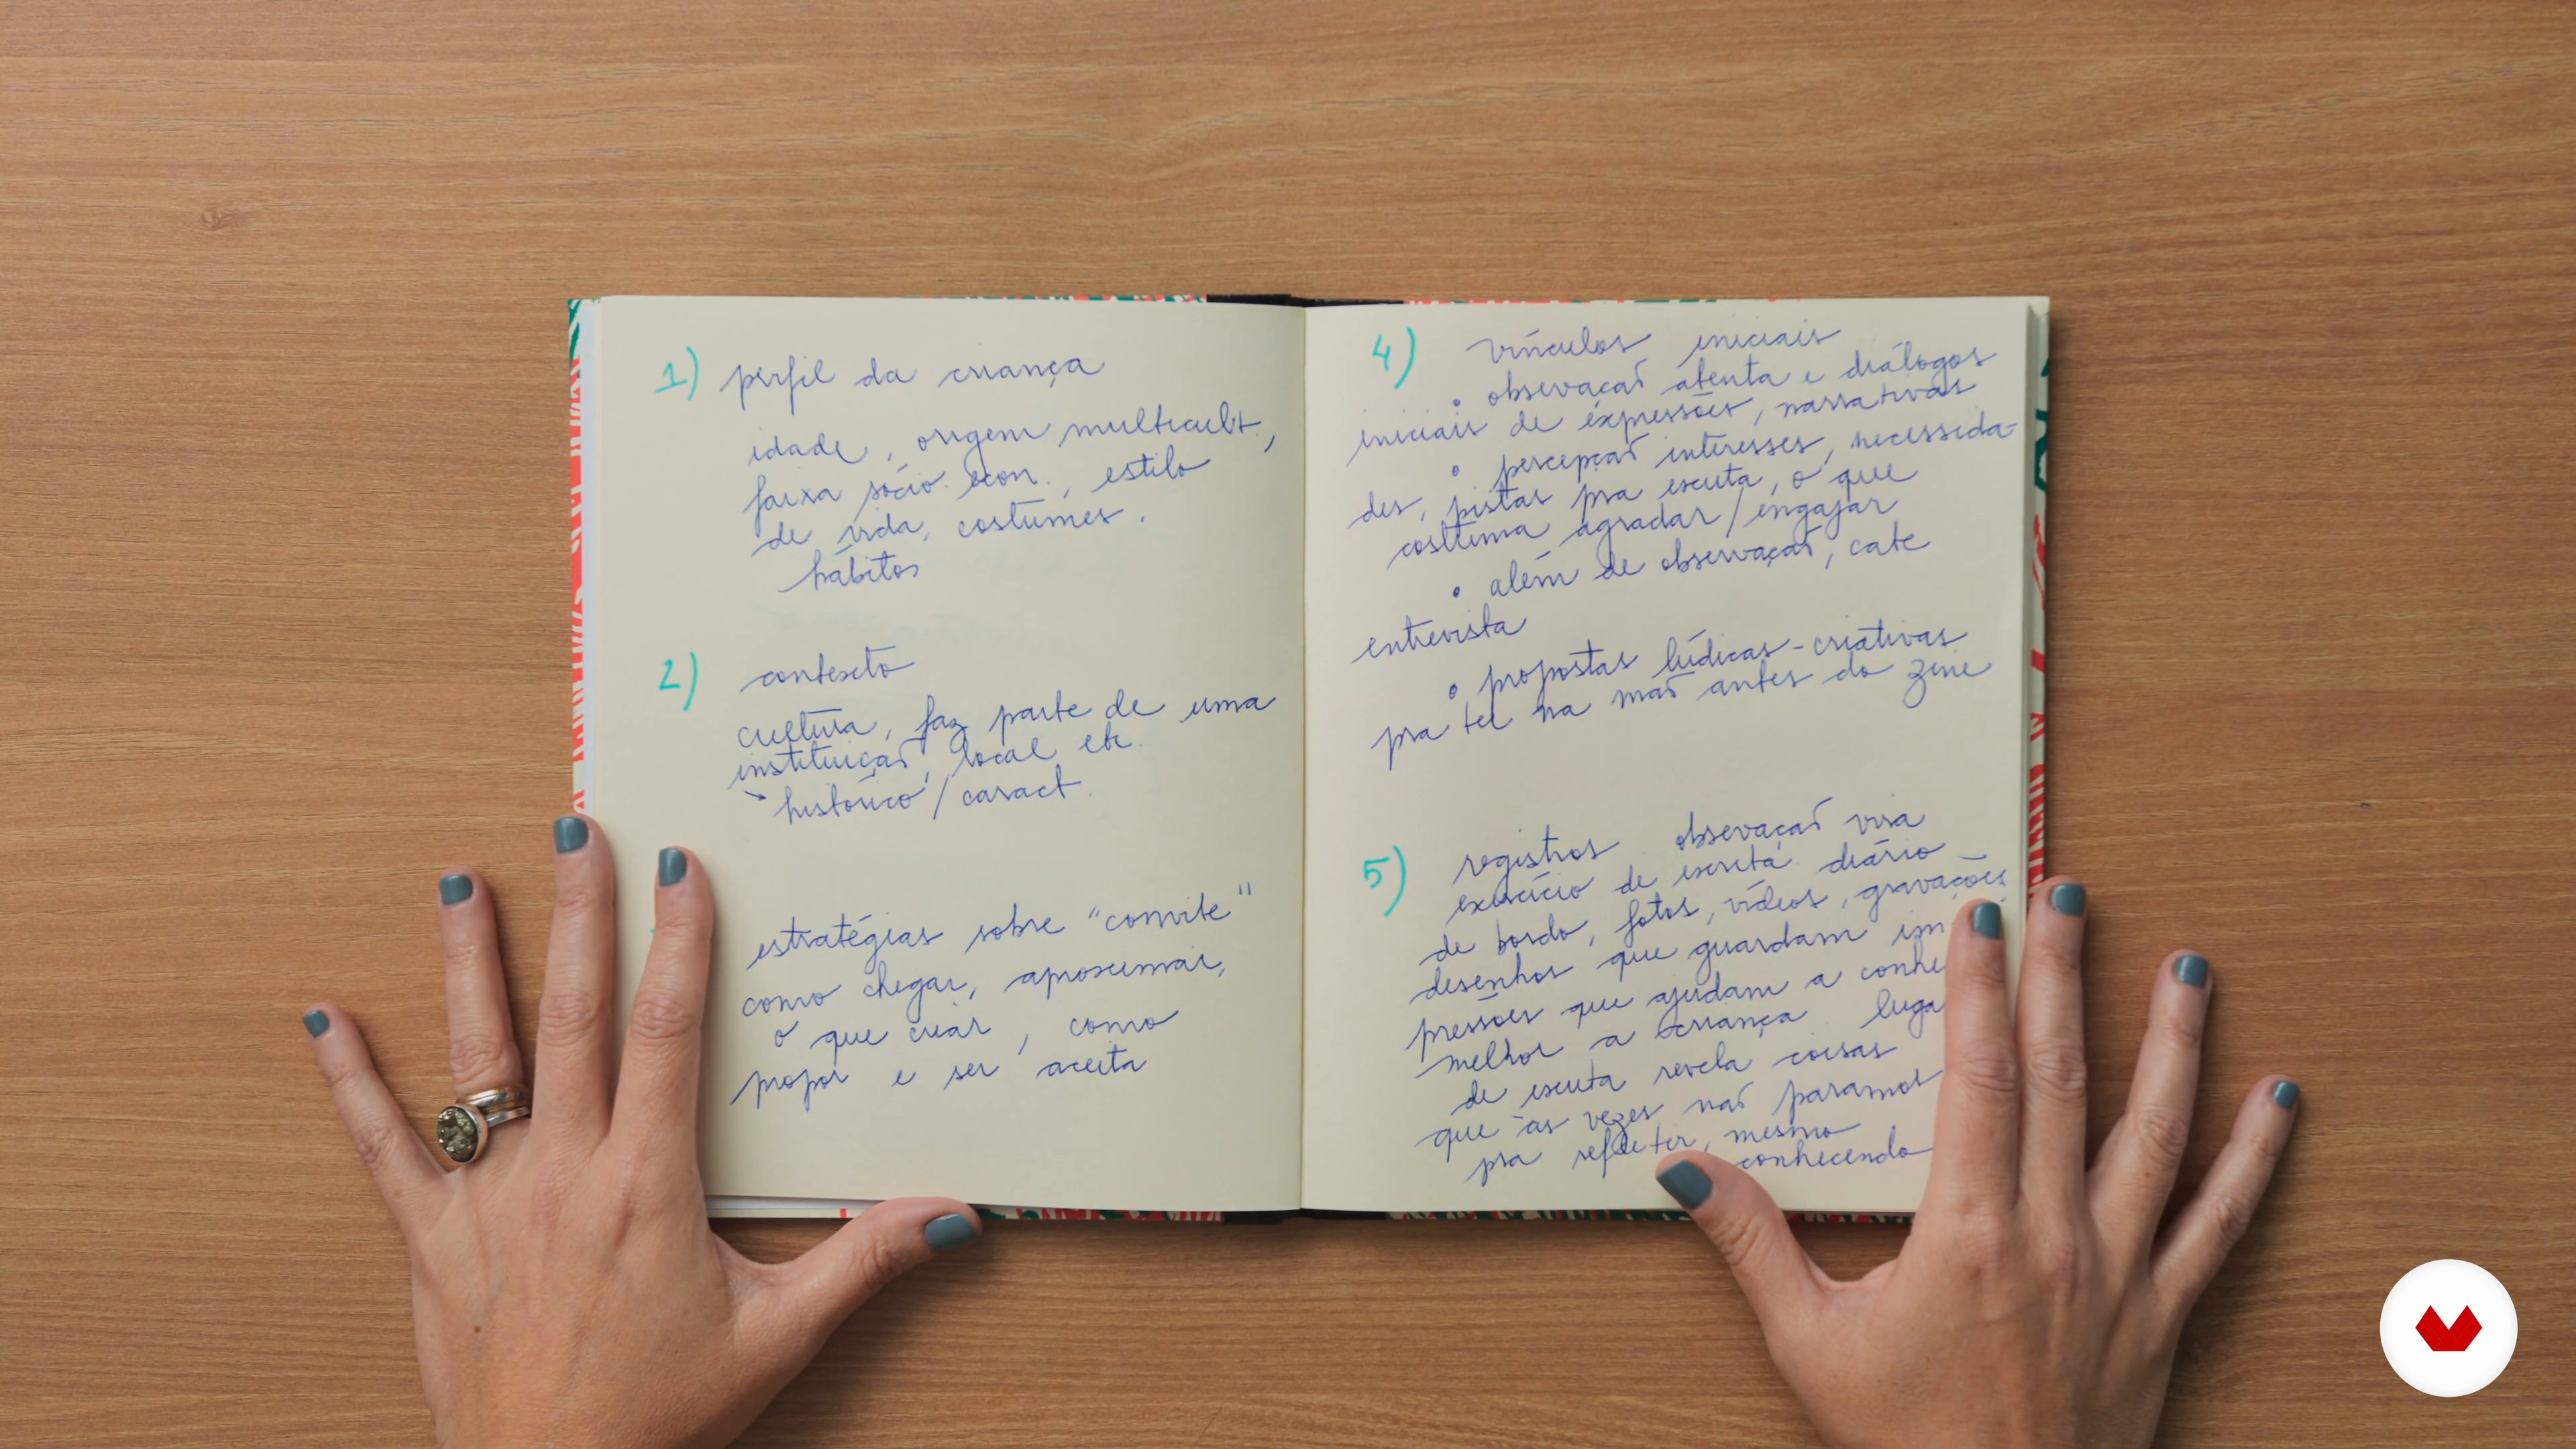 1) perfil da criança
idade, origem multicult.,
faixa sócio. econ., estilo
de vida, costumes.
hábitos
2) contexto
cultura, faz parte de uma
instituição, local etc.
→ histórico / caract.
estratégias sobre "convite"
como chegar, aproximar,
o que criar, como
propor e ser aceita
4) vínculos iniciais
• obsevação atenta e diálogos
iniciais de expressões, narrativas
• percepção interesses, necessida-
des, pistas pra escuta, o que
costuma agradar/engajar
• além de observação, cabe
entrevista
• propostas lúdicas-criativas
pra ter na mão antes do zine
5) registros obsevação visa
exercício de escrita diário
de bordo, fotos, vídeos, gravações,
desenhos que guardam im
pressões que ajudam a conhe
melhor a criança luga
de escuta revela coisas
que às vezes não paramos
pra refletir, mesmo
conhecendo